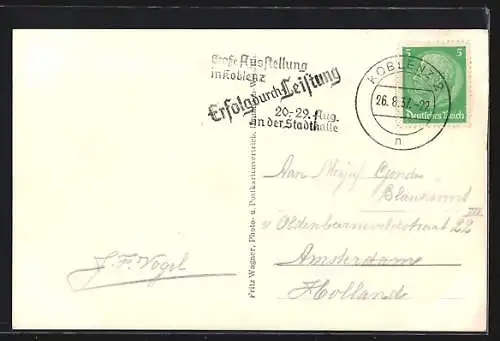 Große Ausstellung
in Koblenz
Erfolg durch Leistung
20.-29. Aug.
in der Stadthalle
KOBLENZ 2
26.8.37.-22
n
5 5
Deutsches Reich
Aan Mejuf
Blankevoort
v Oldenbarneveldtstraat 22 III
Amsterdam
Holland
J F. Vogel
Fritz Wagner, Photo- u. Postkartenvertrieb,